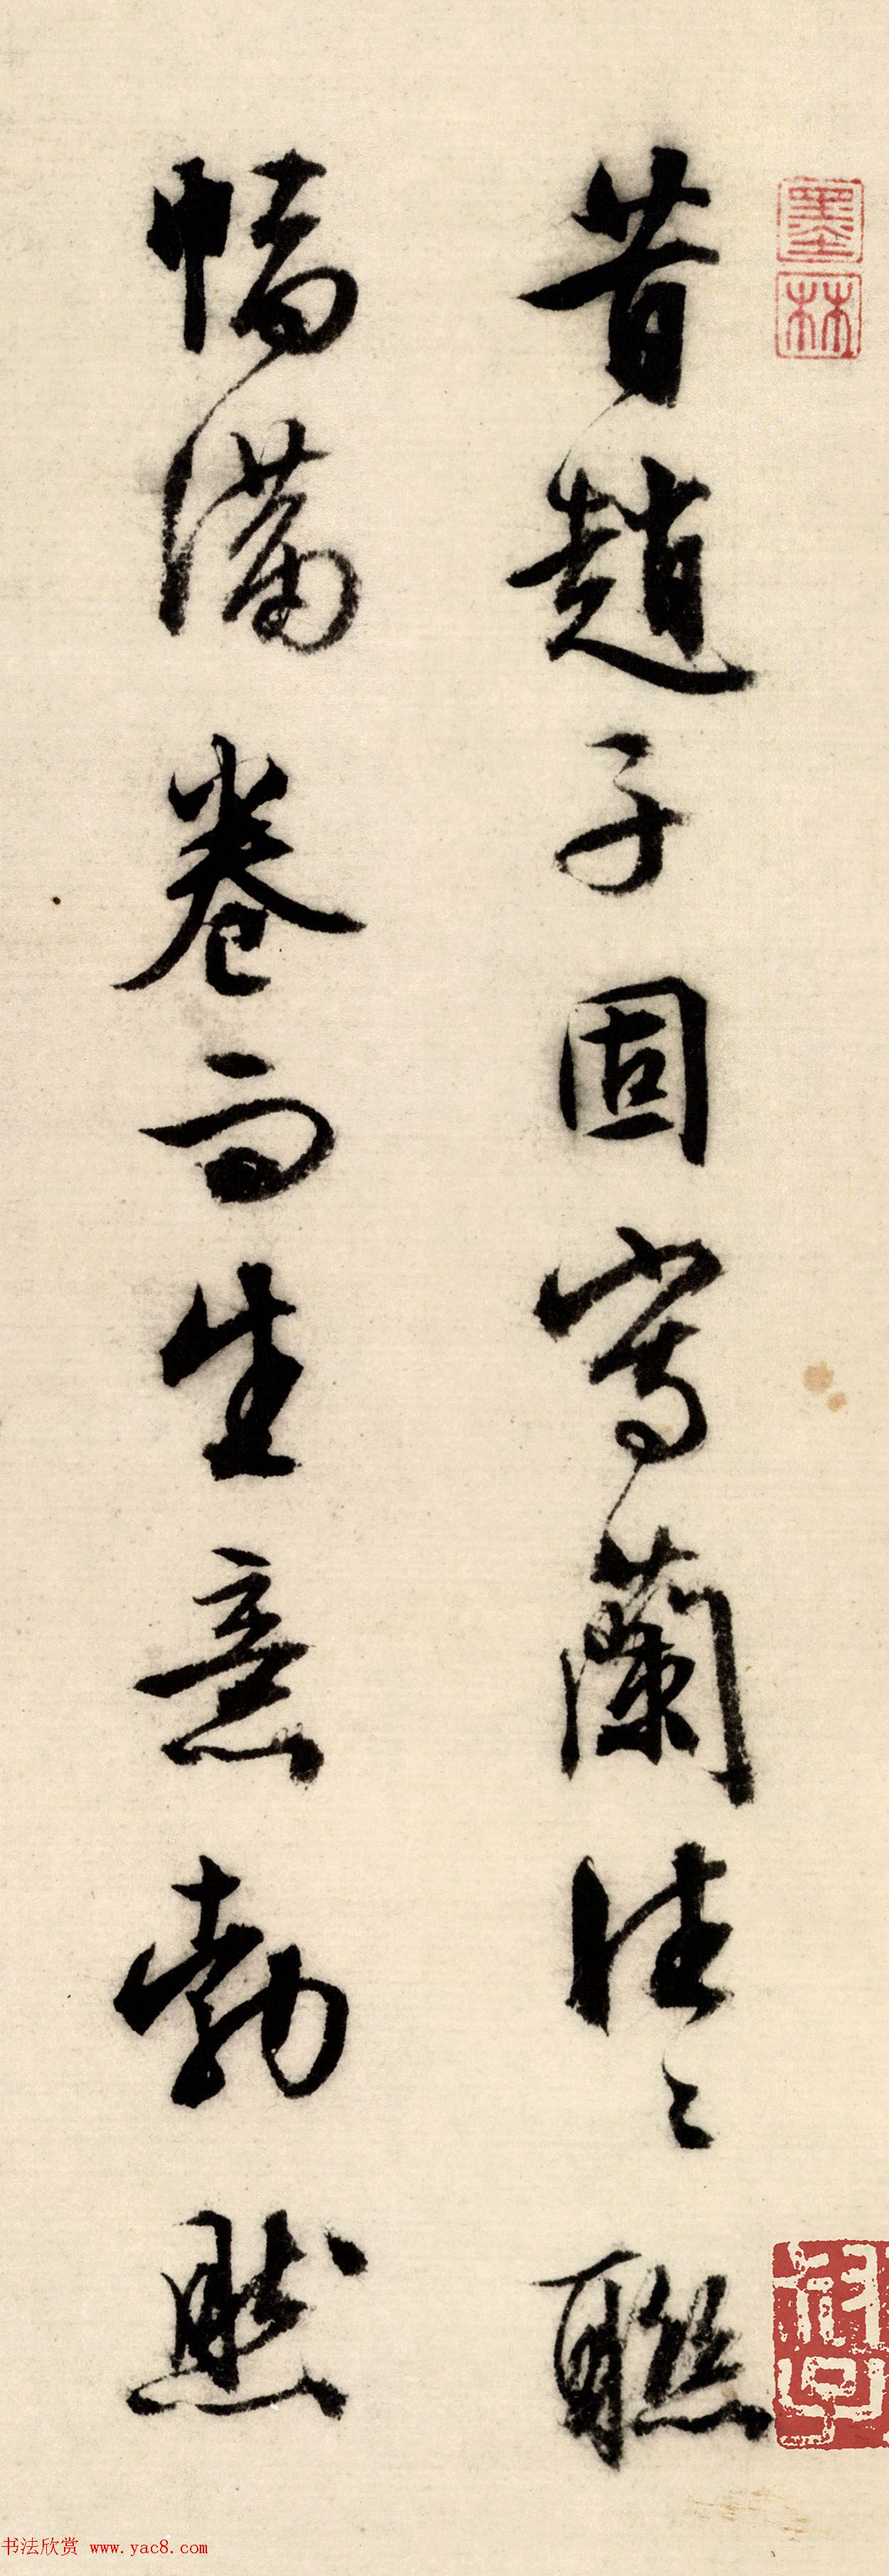 昔趙子固寫蘭往々聯
幅滿卷而生意勃然
墨林
书法欣赏 www.yac8.com